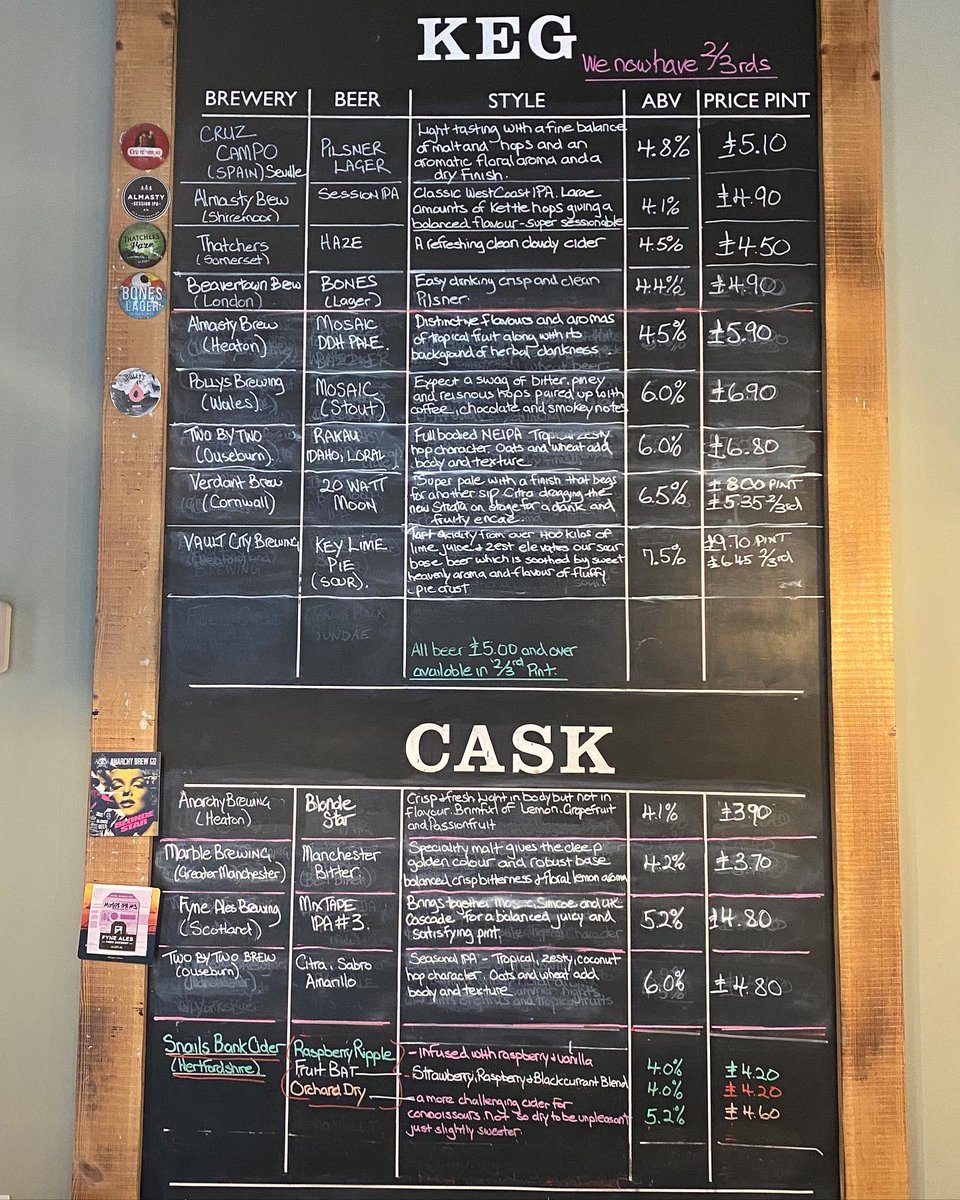 KEG
We now have 2/3rds
BREWERY BEER STYLE ABV PRICE PINT
CRUZ CAMPO (SPAIN) Seville
PILSNER LAGER
Light tasting with a fine balance
of malt and hops and an
aromatic floral aroma and a
dry Finish.
4.8% £5.10
Almasty Brew (Shiremoor)
SESSION IPA
Classic West Coast IPA. Large
amounts of Kettle hops giving a
balanced flavour-super sessionable
4.1% £4.90
Thatchers (Somerset)
HAZE
A refreshing clean cloudy cider
4.5% £4.50
Beavertown Brew (London)
BONES (Lager)
Easy drinking crisp and clean
Pilsner.
4.4% £4.90
Almasty Brew (Heaton)
MOSAIC DDH PALE.
Distinctive flavours and aromas
of tropical fruit along with its
background of herbal dankness.
4.5% £5.90
Pollys Brewing (Wales)
MOSAIC (Stout)
Expect a swag of bitter, piney
and reisnous hops paired up with
coffee, chocolate and smokey notes
6.0% £6.90
Two By Two (Ouseburn)
RAKAU IDAHO, LORAL
Full bodied NEIPA Tropical zesty
hop character. Oats and wheat add
body and texture
6.0% £6.80
Verdant Brew (Cornwall)
20 WATT MOON
Super pale with a finish that begs
for another sip Citra dragging the
new Strata on stage for a dank and
fruity encae.
6.5% £8.00 PINT
£5.35 2/3rd
VAULT CITY BREWING
KEY LIME PIE (SOUR).
Tart acidity from over 400 kilos of
lime juice & zest elevates our sour
base beer which is soothed by sweet
heavenly aroma and flavour of fluffy
pie crust
7.5% £9.70 PINT
£6.45 2/3rd
All beer £5.00 and over
available in 2/3rd Pint.
CASK
Anarchy Brewing (Heaton)
Blonde Star
Crisp & fresh light in body but not in
flavour. Brimful of Lemon. Grapefruit
and Passionfruit
4.1% £3.90
Marble Brewing (Greater Manchester)
Manchester Bitter
Speciality malt gives the deep
golden colour and robust base
balanced crisp bitterness & floral lemon aroma
4.2% £3.70
Fyne Ales Brewing (Scotland)
MIXTAPE IPA #3.
Brings together Mosaic, Simcoe and UK
Cascade for a balanced, juicy and
satisfying pint.
5.2% £4.80
TWO BY TWO BREW (Ouseburn)
Citra, Sabro Amarillo
Seasonal IPA - Tropical, zesty, coconut
hop character. Oats and wheat add
body and texture
6.0% £4.80
Snails Bank Cider
(Hertfordshire)
Raspberry Ripple - infused with raspberry & vanilla 4.0% £4.20
FRUIT BAT - Strawberry, Raspberry & Blackcurrant Blend 4.0% £4.20
Orchard Dry - a more challenging cider for 5.2% £4.60
connoissours not so dry to be unpleasant
just slightly sweeter.
ALMASTY
SESSION IPA
THATCHERS
Haze
BONES
LAGER
ANARCHY BREW CO
BLONDE STAR
FYNE ALES